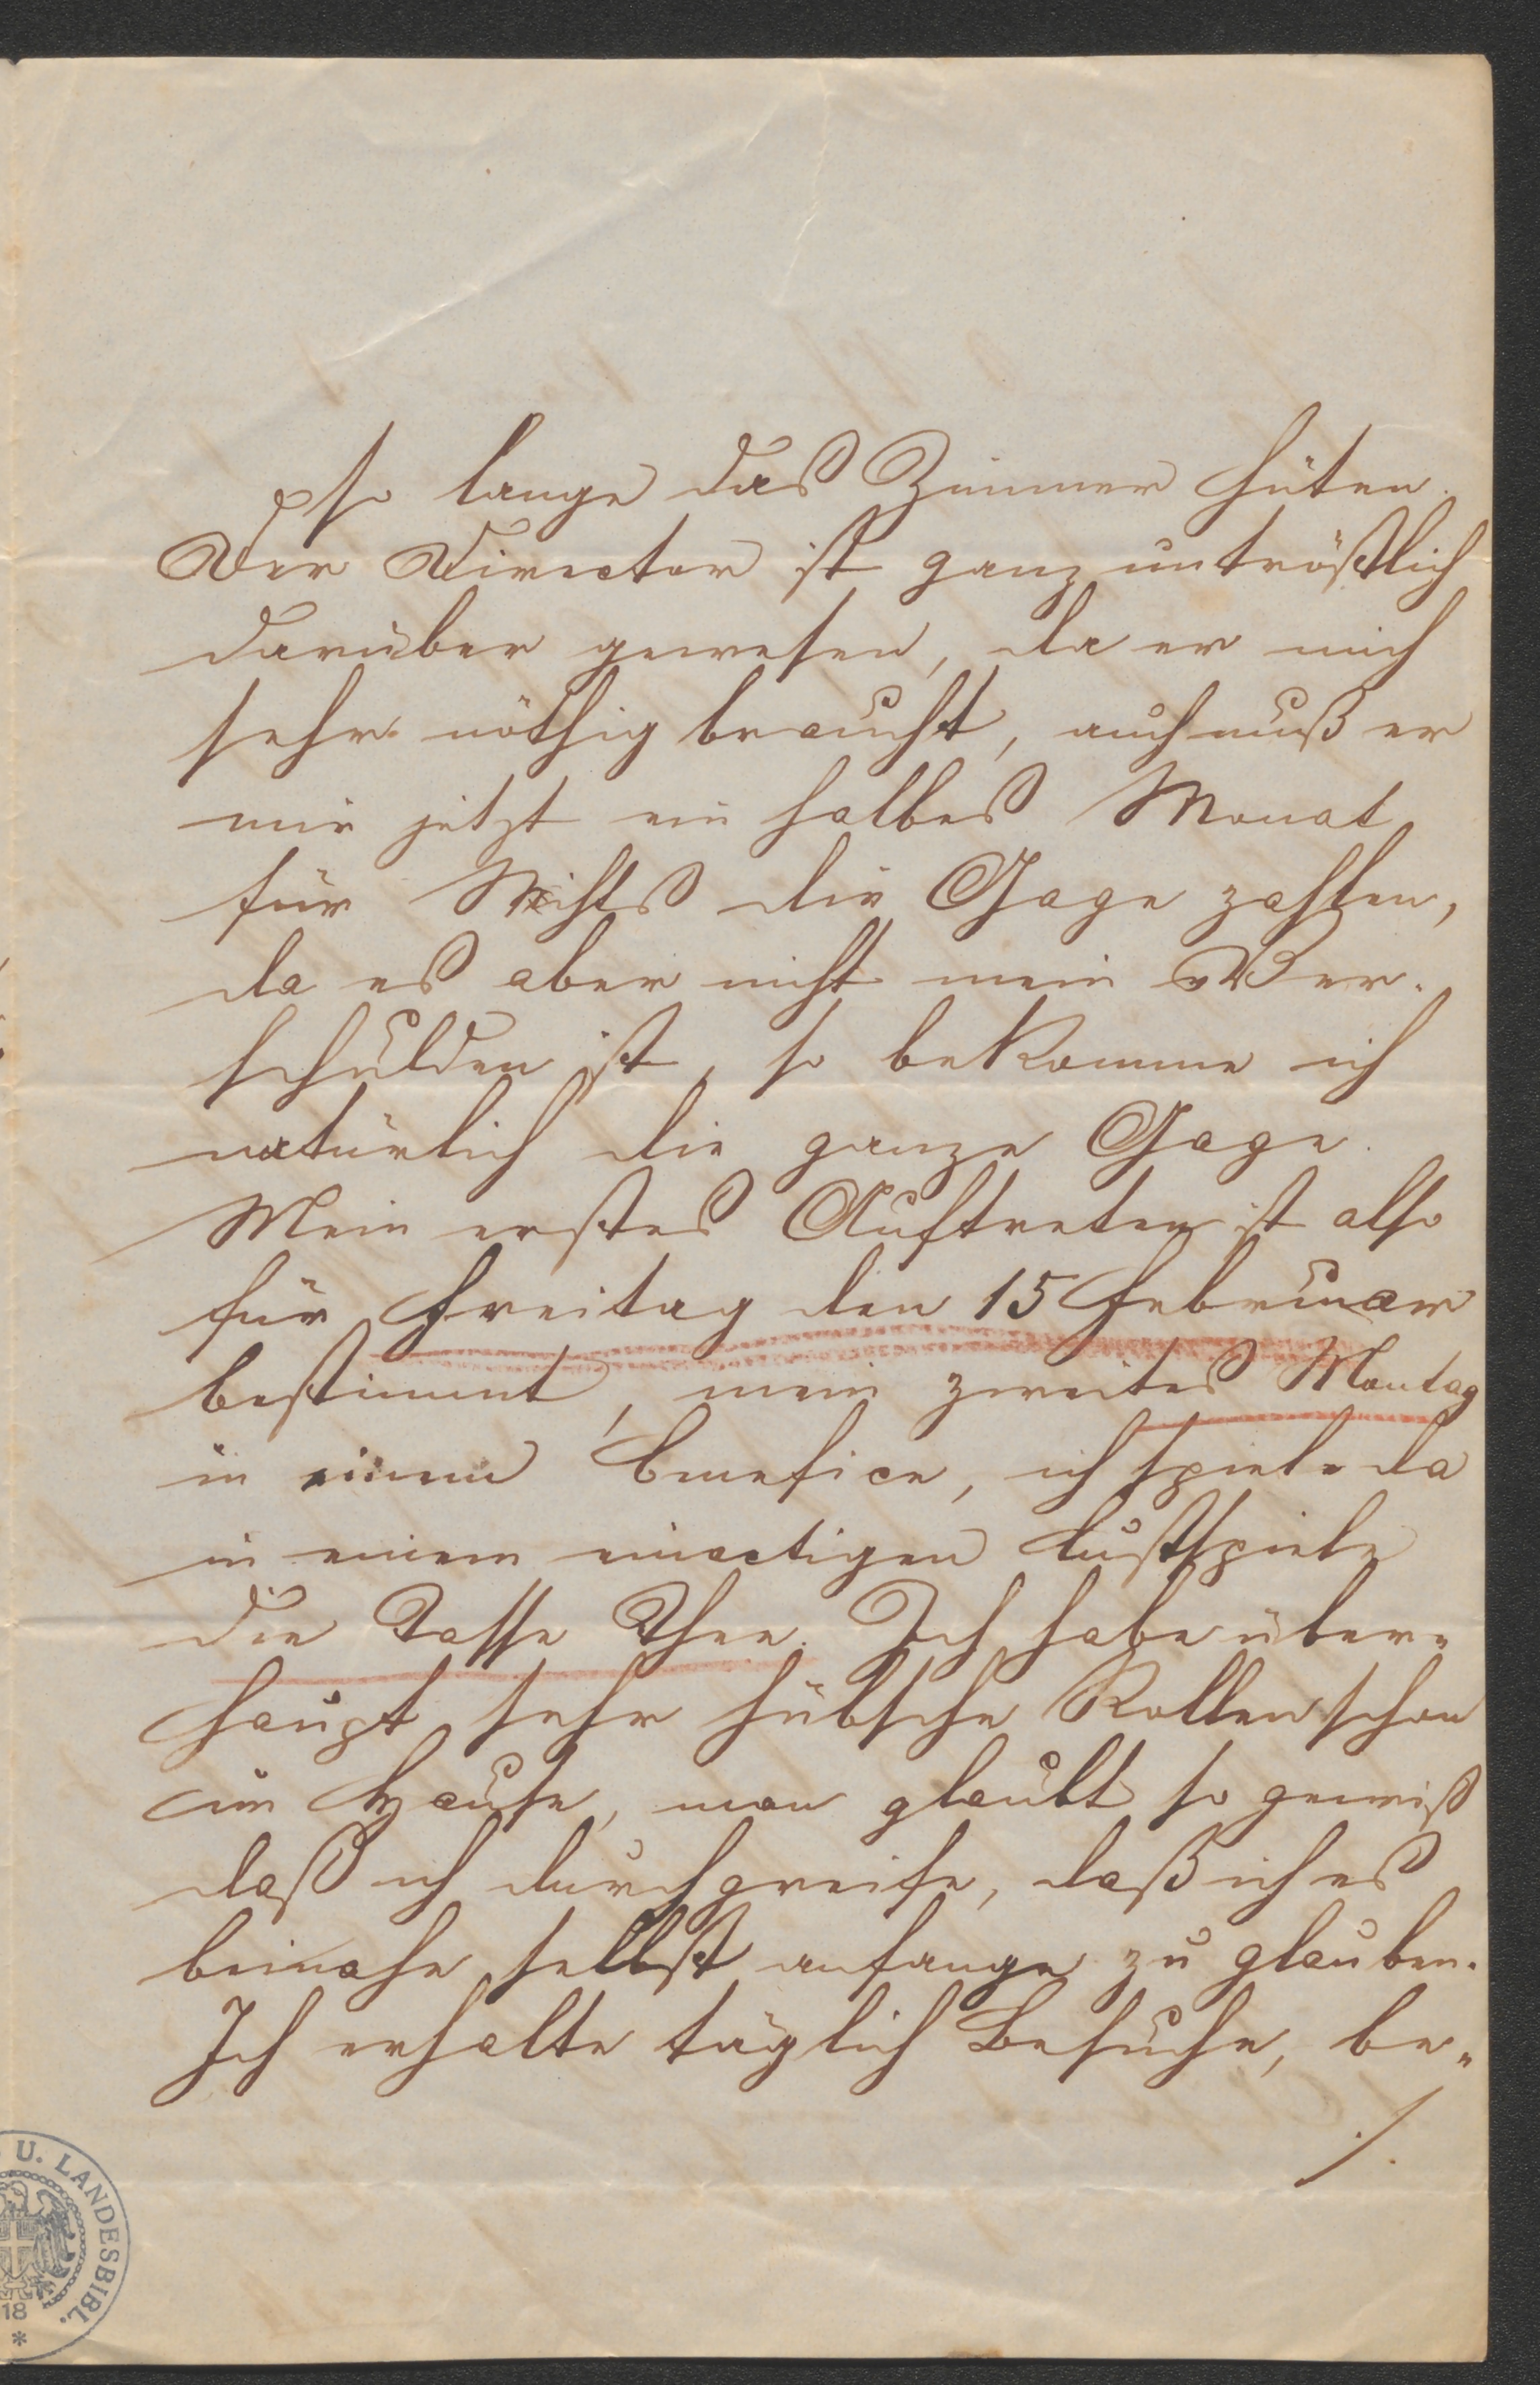 so lange das Zimmer hüten.
Der Director ist ganz untröstlich
darüber gewesen, da er mich
sehr nöthig braucht, auch muß er
mir jetzt ein halbes Monat
für Nichts die Gage zahlen,
da es aber nicht mein Ver-
schulden ist, so bekomme ich
natürlich die ganze Gage.
Mein erstes Auftreten ist also
für Freitag den 15 Februar
bestimmt, mein zweites Montag
in einem Benefice, ich spiele da
in einem einactigen Lustspiele
die Tasse Thee. Ich habe über„
haupt sehr hübsche Rollen schon
im Hause, man glaubt so gewiß
daß ich durchgreife, daß ich es
beinahe selbst anfange zu glauben.
Ich erhalte täglich Besuche, be„
./.
U. LANDESBIBL.
18
*